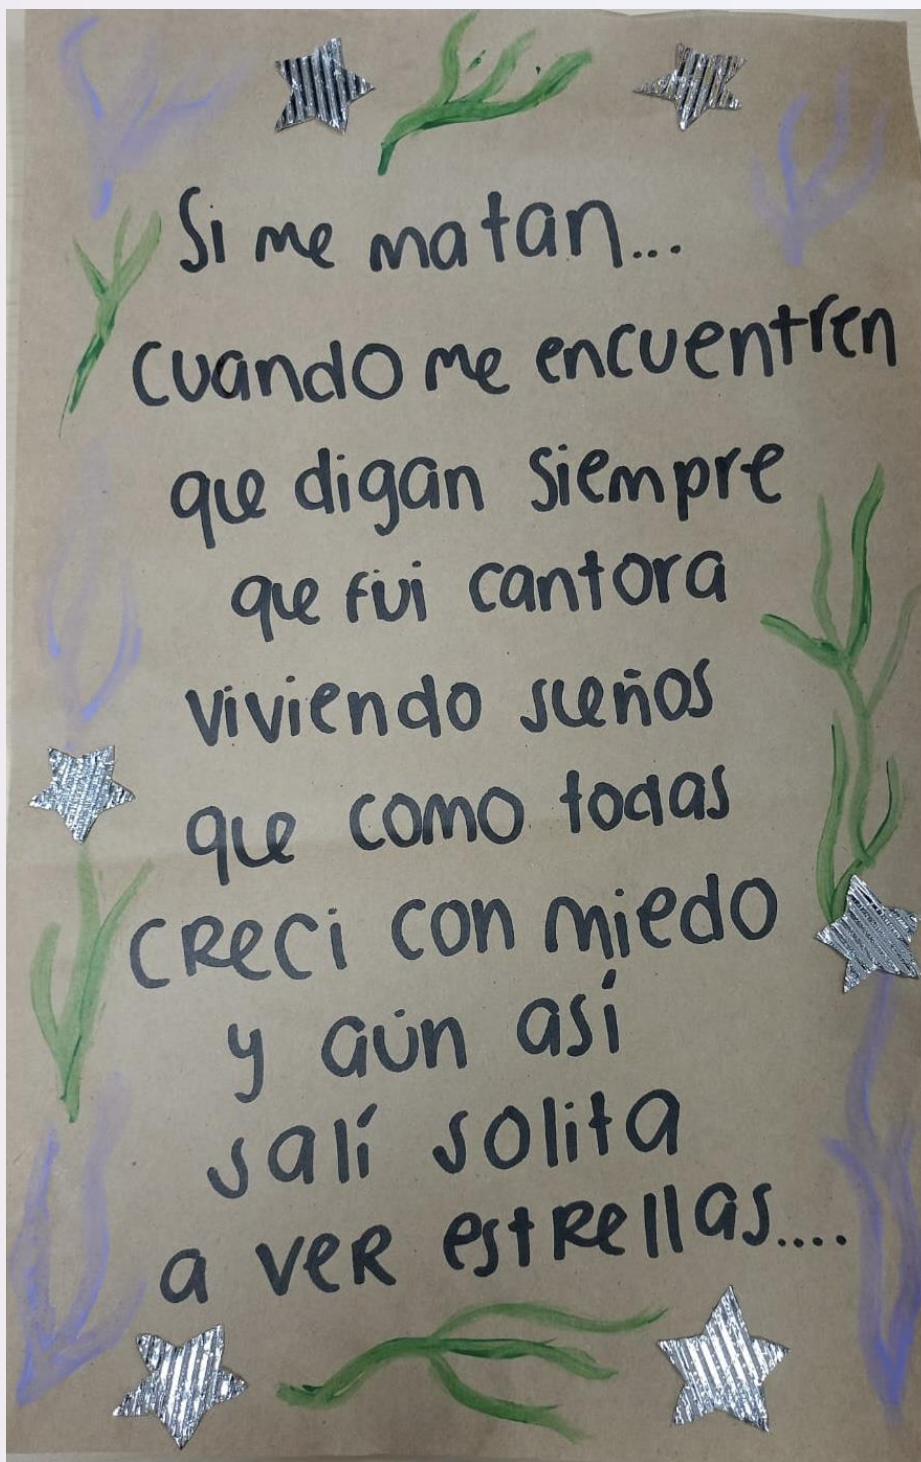 Si me matan...
cuando me encuentren
que digan siempre
que fui cantora
viviendo sueños
que como todas
CReCi con miedo
y aún así
salí solita
a veR estRellas....